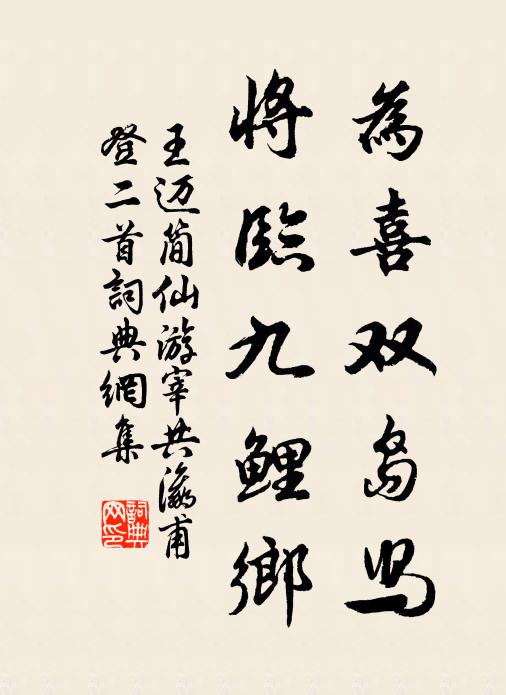 為喜双凫舄
將臨九鯉鄉
王迈简仙游宰共瀛甫
登二首詞典網集
詞典
网印